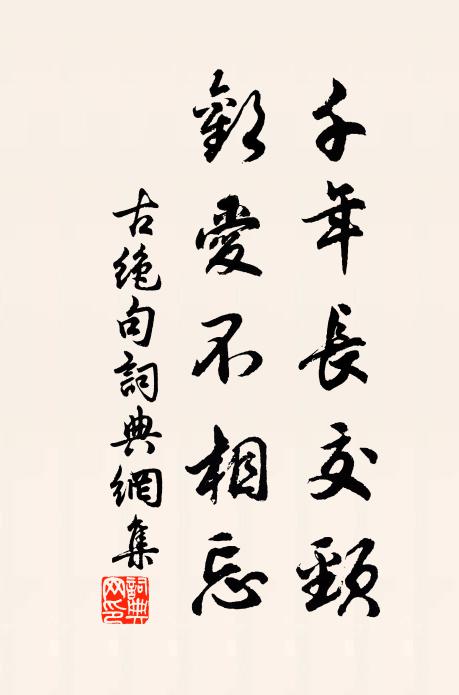 千年長交頸
歡愛不相忘
古絶句詞典網集
詞典網印